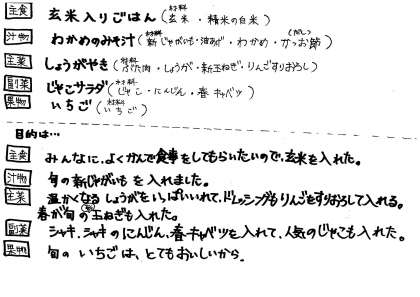 主食 玄米入りごはん(材料 玄米・精米の白米)
汁物 わかめのみそ汁(材料 新じゃがいも・油あげ・わかめ・かつお節(だし))
主菜 しょうがやき(材料 ぶた肉・しょうが・新玉ねぎ・りんごすりおろし)
副菜 じゃこサラダ(材料 じゃこ・にんじん・春キャベツ)
果物 いちご(材料 いちご)
目的は…
主食 みんなに、よくかんで食事をしてもらいたいので、玄米を入れた。
汁物 旬の新じゃがいもを入れました。
主菜 温かくなるしょうがをいっぱいいれて、ドレッシングもりんごをすりおろして入れる。
春が旬の(新)玉ねぎも入れた。
副菜 シャキ、シャキのにんじん、春キャベツを入れて、人気のじゃこも入れた。
果物 旬のいちごは、とてもおいしいから。